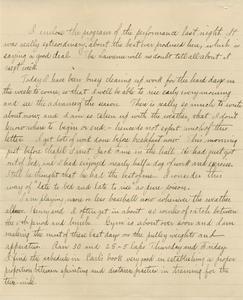 I enclose the program of the performance last night. It
was really extraordinary, about the best ever produced here, which is
saying a good deal. The Lawrence will no doubt tell all about it
next week.
Today I have been busy clearing up work for the hard days in
the week to come, so that I will be able to rise early every morning
and see the advance of the season. There is really so much to write
about now, and I am so taken up with the weather, that I don't
know where to begin or end - hence do not expect much of this
letter. I got lots of work done before breakfast now. This morning
just before
out of bed, and I had enjoyed nearly half a day of work and exercise.
Still he thought that he had the best of me. I consider the
way of "late to bed and late to rise" as pure poison.
I am playing more or less baseball now whenever the weather
allows. Henry and I often get in about 20 minutes of catch between
the 4th period and lunch. Gym is about over soon and I am
making the most of these last days on the pulley weights and
apparatus. Ran 30 and 25-5 laps Thursday and Friday.
I find the schedule in Earle's book very good in establishing a proper
proportion between sprinting and distance practice in training for the
two-mile.